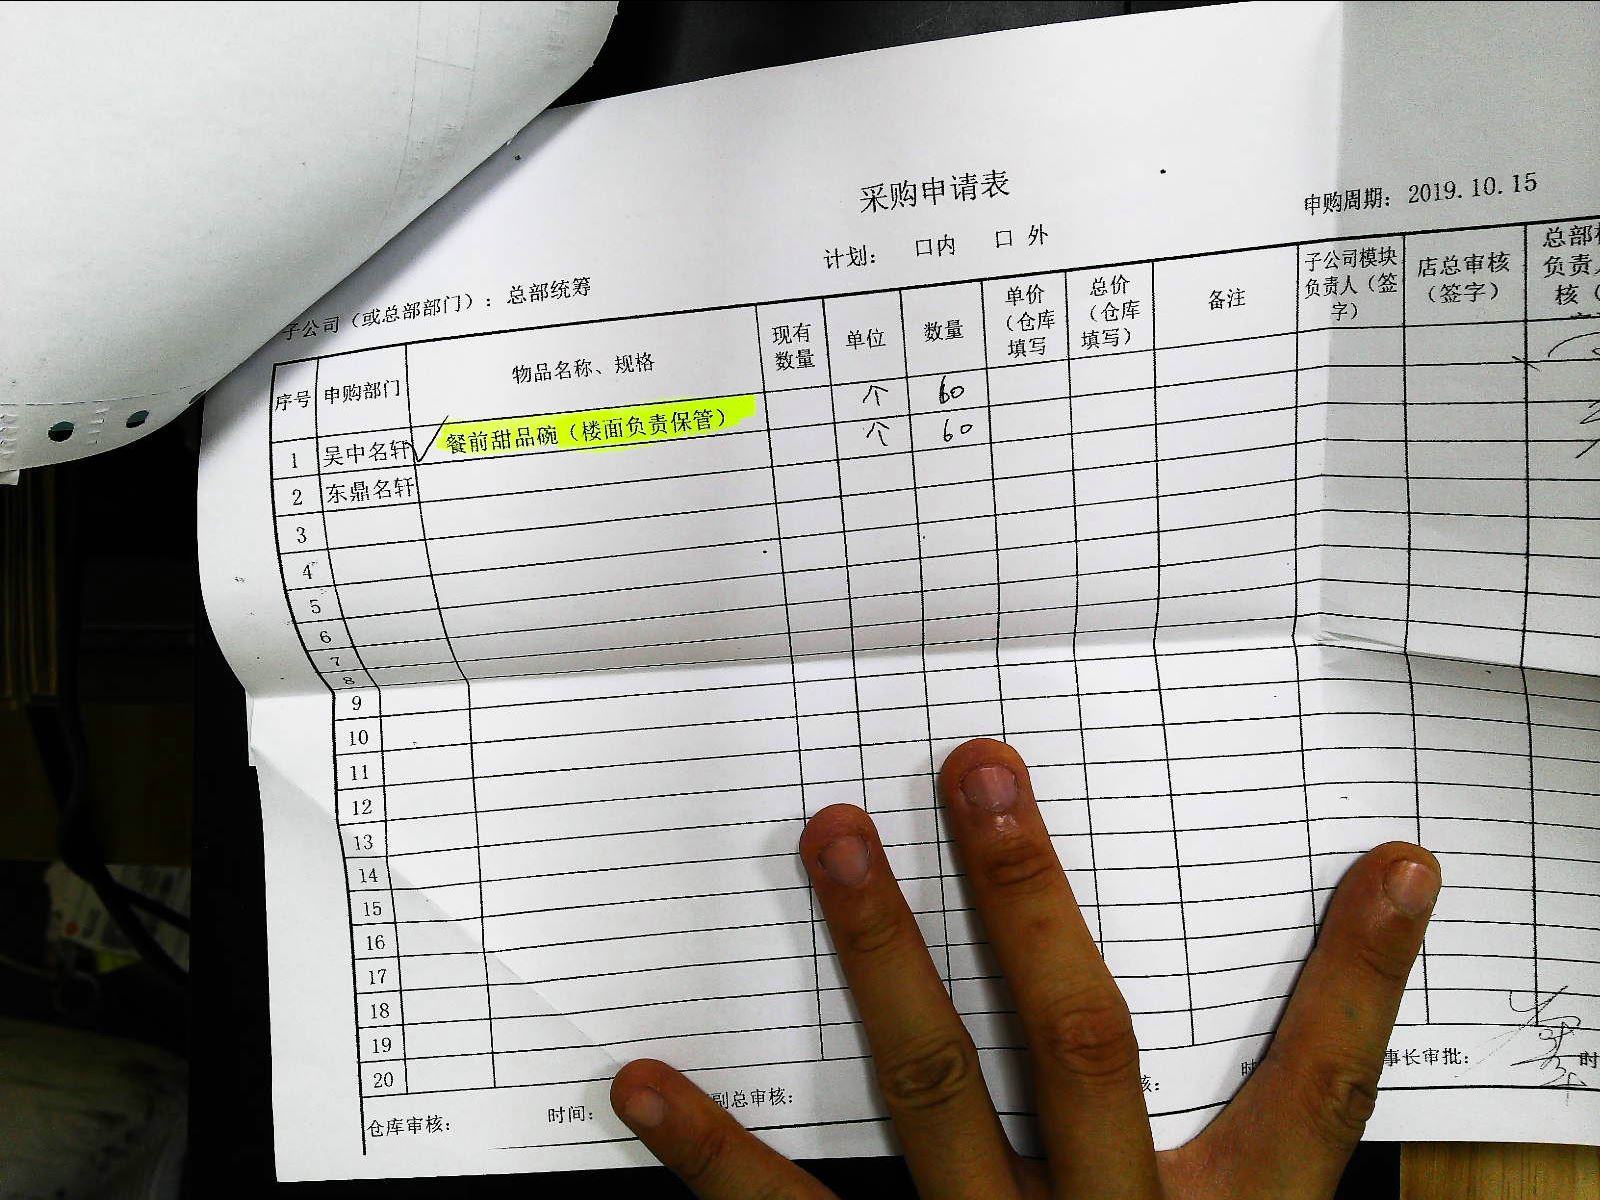 采购申请表
申购周期：2019.10.15
计划： 口内 口 外
子公司（或总部部门）：总部统筹
序号 申购部门 物品名称、规格 现有数量 单位 数量 单价（仓库填写 总价（仓库填写） 备注 子公司模块负责人（签字） 店总审核（签字） 总部 负责 核（
1 吴中名轩 餐前甜品碗（楼面负责保管） 个 60
2 东鼎名轩 个 60
3
4
5
6
7
8
9
10
11
12
13
14
15
16
17
18
19
20
仓库审核： 时间： 副总审核： 核： 时 事长审批： 时